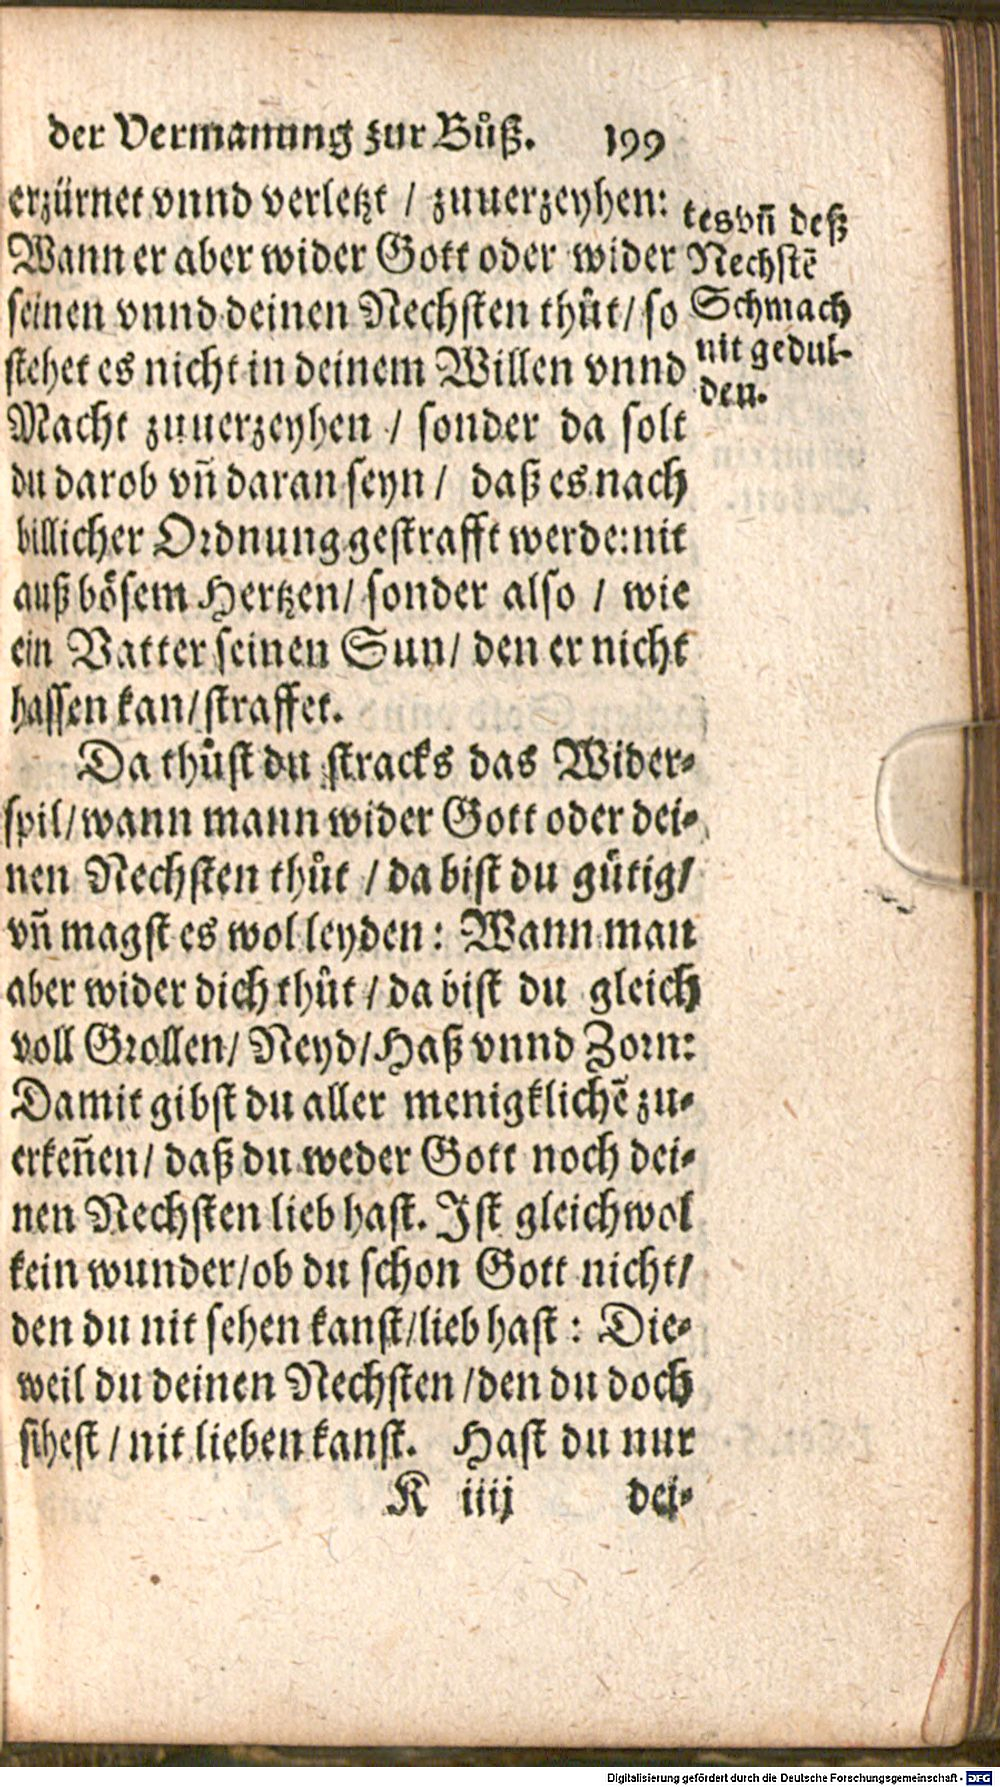 der Vermanung zur Bůß. 199
erzürnet vnnd verletzt / zuuerzeyhen:
Wann er aber wider Gott oder wider
seinen vnnd deinen Nechsten thůt / so
stehet es nicht in deinem Willen vnnd
Macht zuuerzeyhen / sonder da solt
du darob vñ daran seyn / daß es nach
billicher Ordnung gestrafft werde: nit
auß bösem Hertzen / sonder also / wie
ein Vatter seinen Sun / den er nicht
hassen kan / straffet.
Da thůst du stracks das Wider-
spil / wann mann wider Gott oder dei-
nen Nechsten thůt / da bist du gütig /
vñ magst es wol leyden: Wann man
aber wider dich thůt / da bist du gleich
voll Grollen / Neyd / Haß vnnd Zorn:
Damit gibst du aller menigklichē zu-
erkeñen / daß du weder Gott noch dei-
nen Nechsten lieb hast. Ist gleichwol
kein wunder / ob du schon Gott nicht /
den du nit sehen kanst / lieb hast: Die-
weil du deinen Nechsten / den du doch
sihest / nit lieben kanst. Hast du nur
K iiij dei-
tes vñ deß
Nechstē
Schmach
nit gedul-
den.
Digitalisierung gefördert durch die Deutsche Forschungsgemeinschaft - DFG